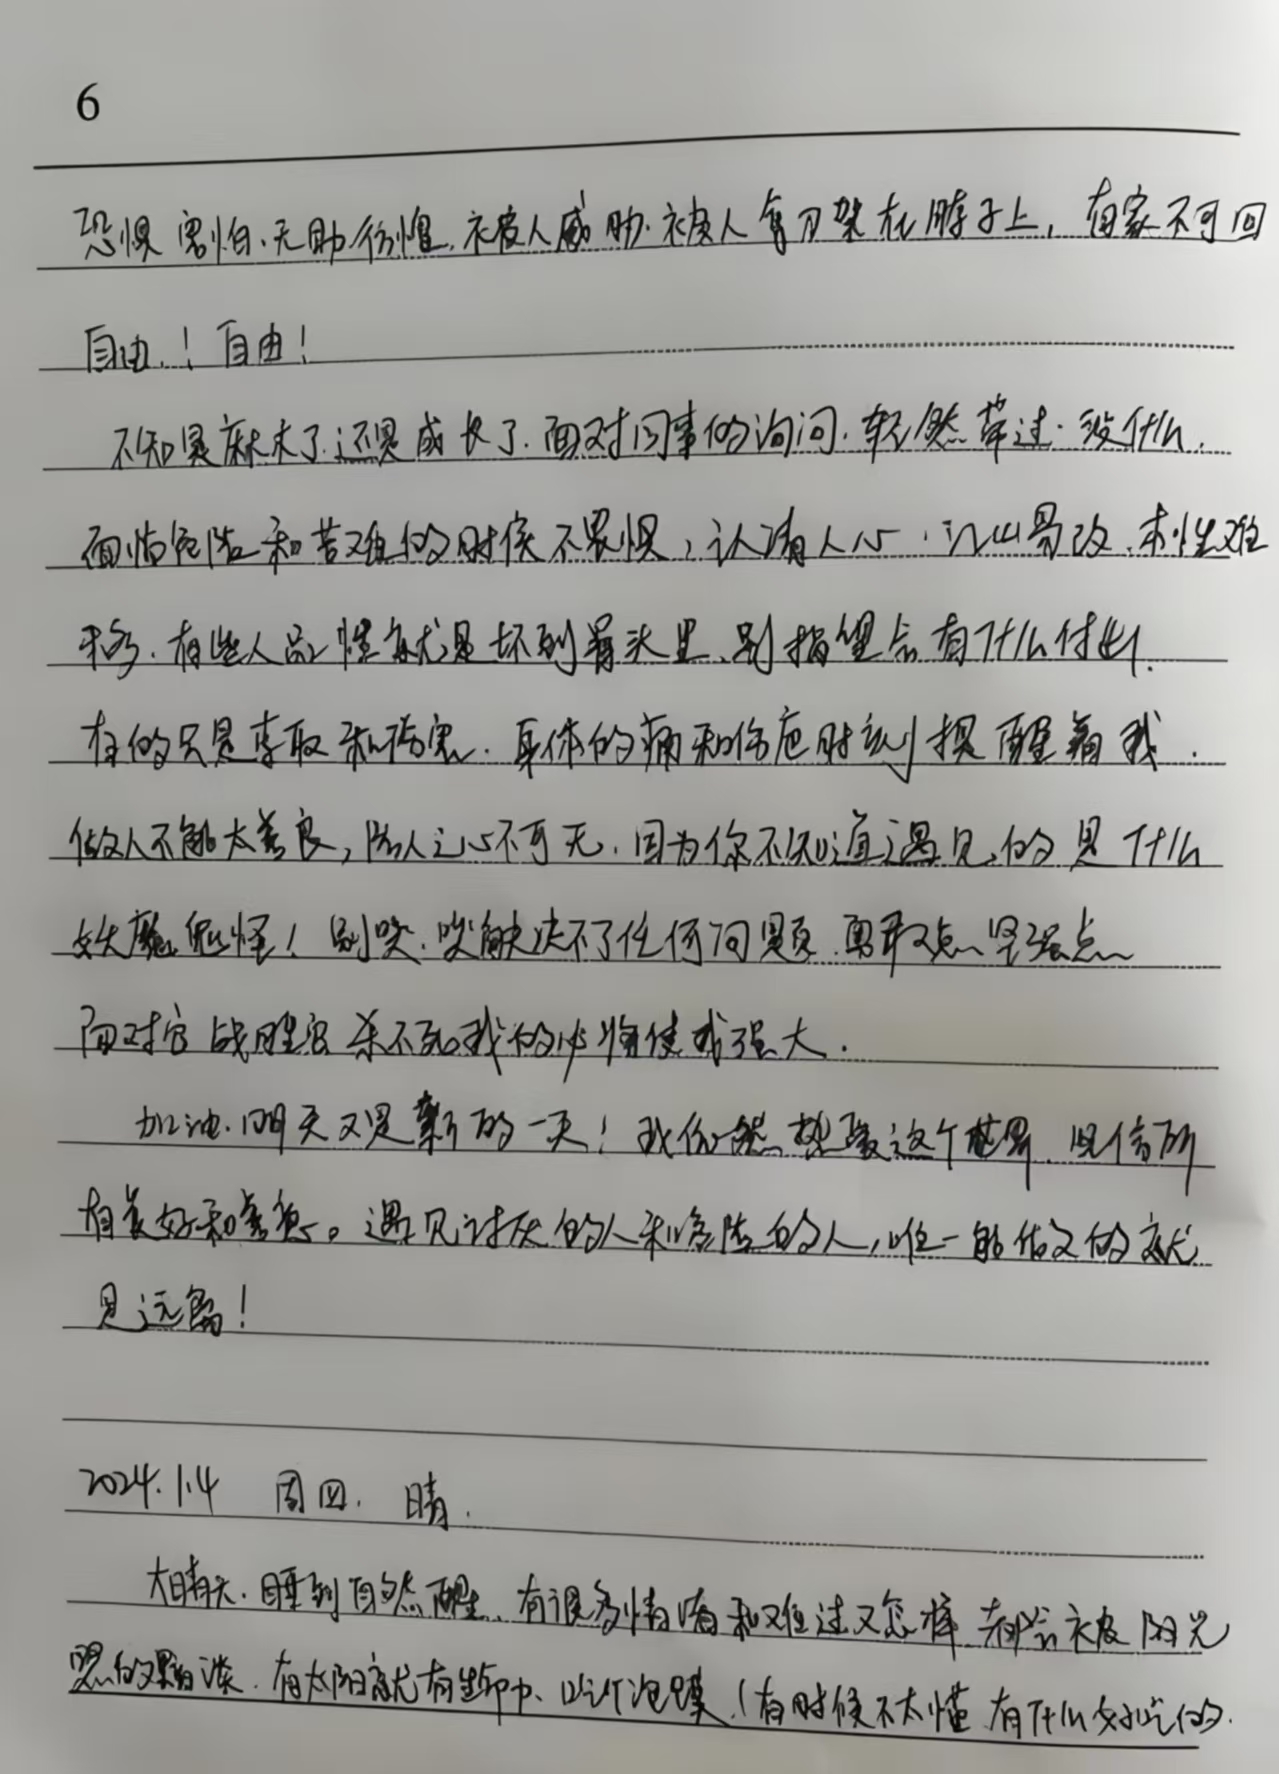 6
恐惧 害怕.无助.彷惶.被人威胁.被人拿刀架在脖子上，有家不可回
自由.！自由！
不知是麻木了.还是成长了.面对同事的询问.轻然带过.没什么.
面临危险和苦难的时候不畏惧，认清人心.江山易改.本性难
移.有些人品性就是坏到骨头里.别指望会有什么付出.
有的只是索取和伤害.身体的痛和伤疤时刻提醒着我.
做人不能太善良，防人之心不可无.因为你不知道遇见的是什么
妖魔鬼怪！别哭.哭解决不了任何问题.勇敢点 坚强点
面对它 战胜它 杀不死我的必将使我强大.
加油.明天又是新的一天！我依然热爱这个世界.坚信所
有美好和善意。遇见讨厌的人和危险的人，唯一能做的就
是远离！
2024.1.4 周四. 晴.
大晴天.睡到自然醒.有很多情绪和难过又怎样 都会被阳光
照的黯淡.有太阳就有生命力、吃个泡馍（有时候不太懂 有什么好吃的.